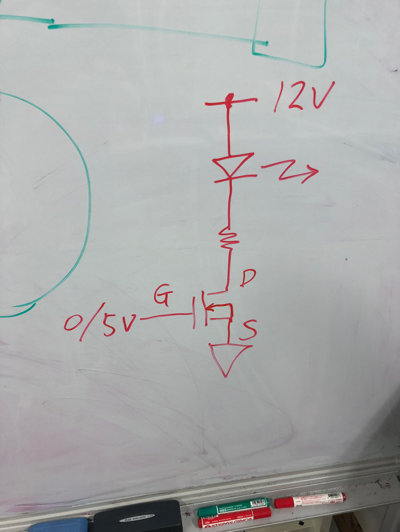 12V
D
G
0/5V
S